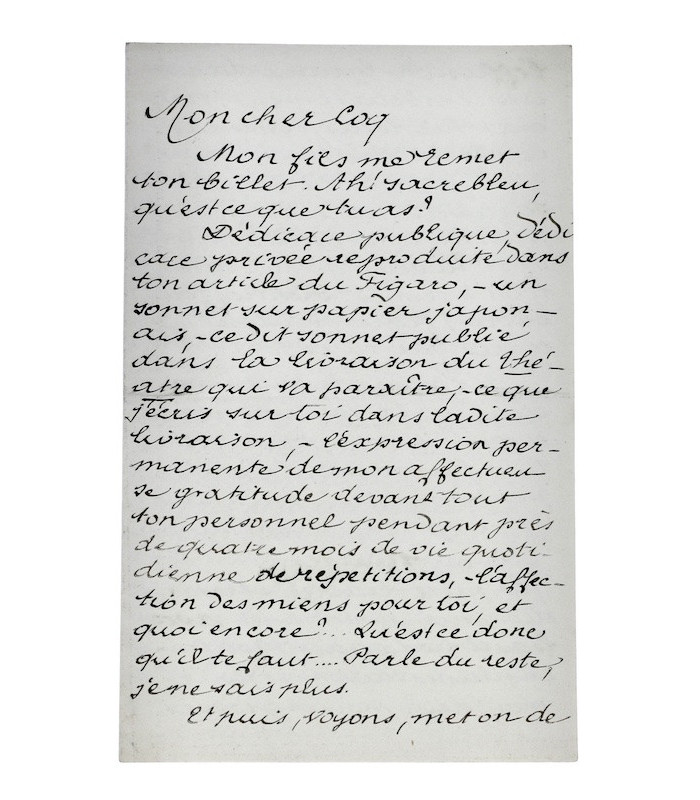 Mon cher Coq
Mon fils me remet
ton billet. Ah! sacrebleu,
qu'est ce que tu as?
Dédicace publique, dédi
cace privée reproduite dans
ton article du Figaro, – un
sonnet sur papier japon–
ais, – ce dit sonnet publié
dans la livraison du Thé–
atre qui va paraître, – ce que
j'écris sur toi dans ladite
livraison, – l'expression per–
manente de mon affectueu
se gratitude devant tout
ton personnel pendant près
de quatre mois de vie quoti–
dienne de répetitions, – l'affec–
tion des miens pour toi, et
quoi encore?... Qu'est ce donc
qu'il te faut.... Parle du reste,
je ne sais plus.
Et puis, voyons, met on de